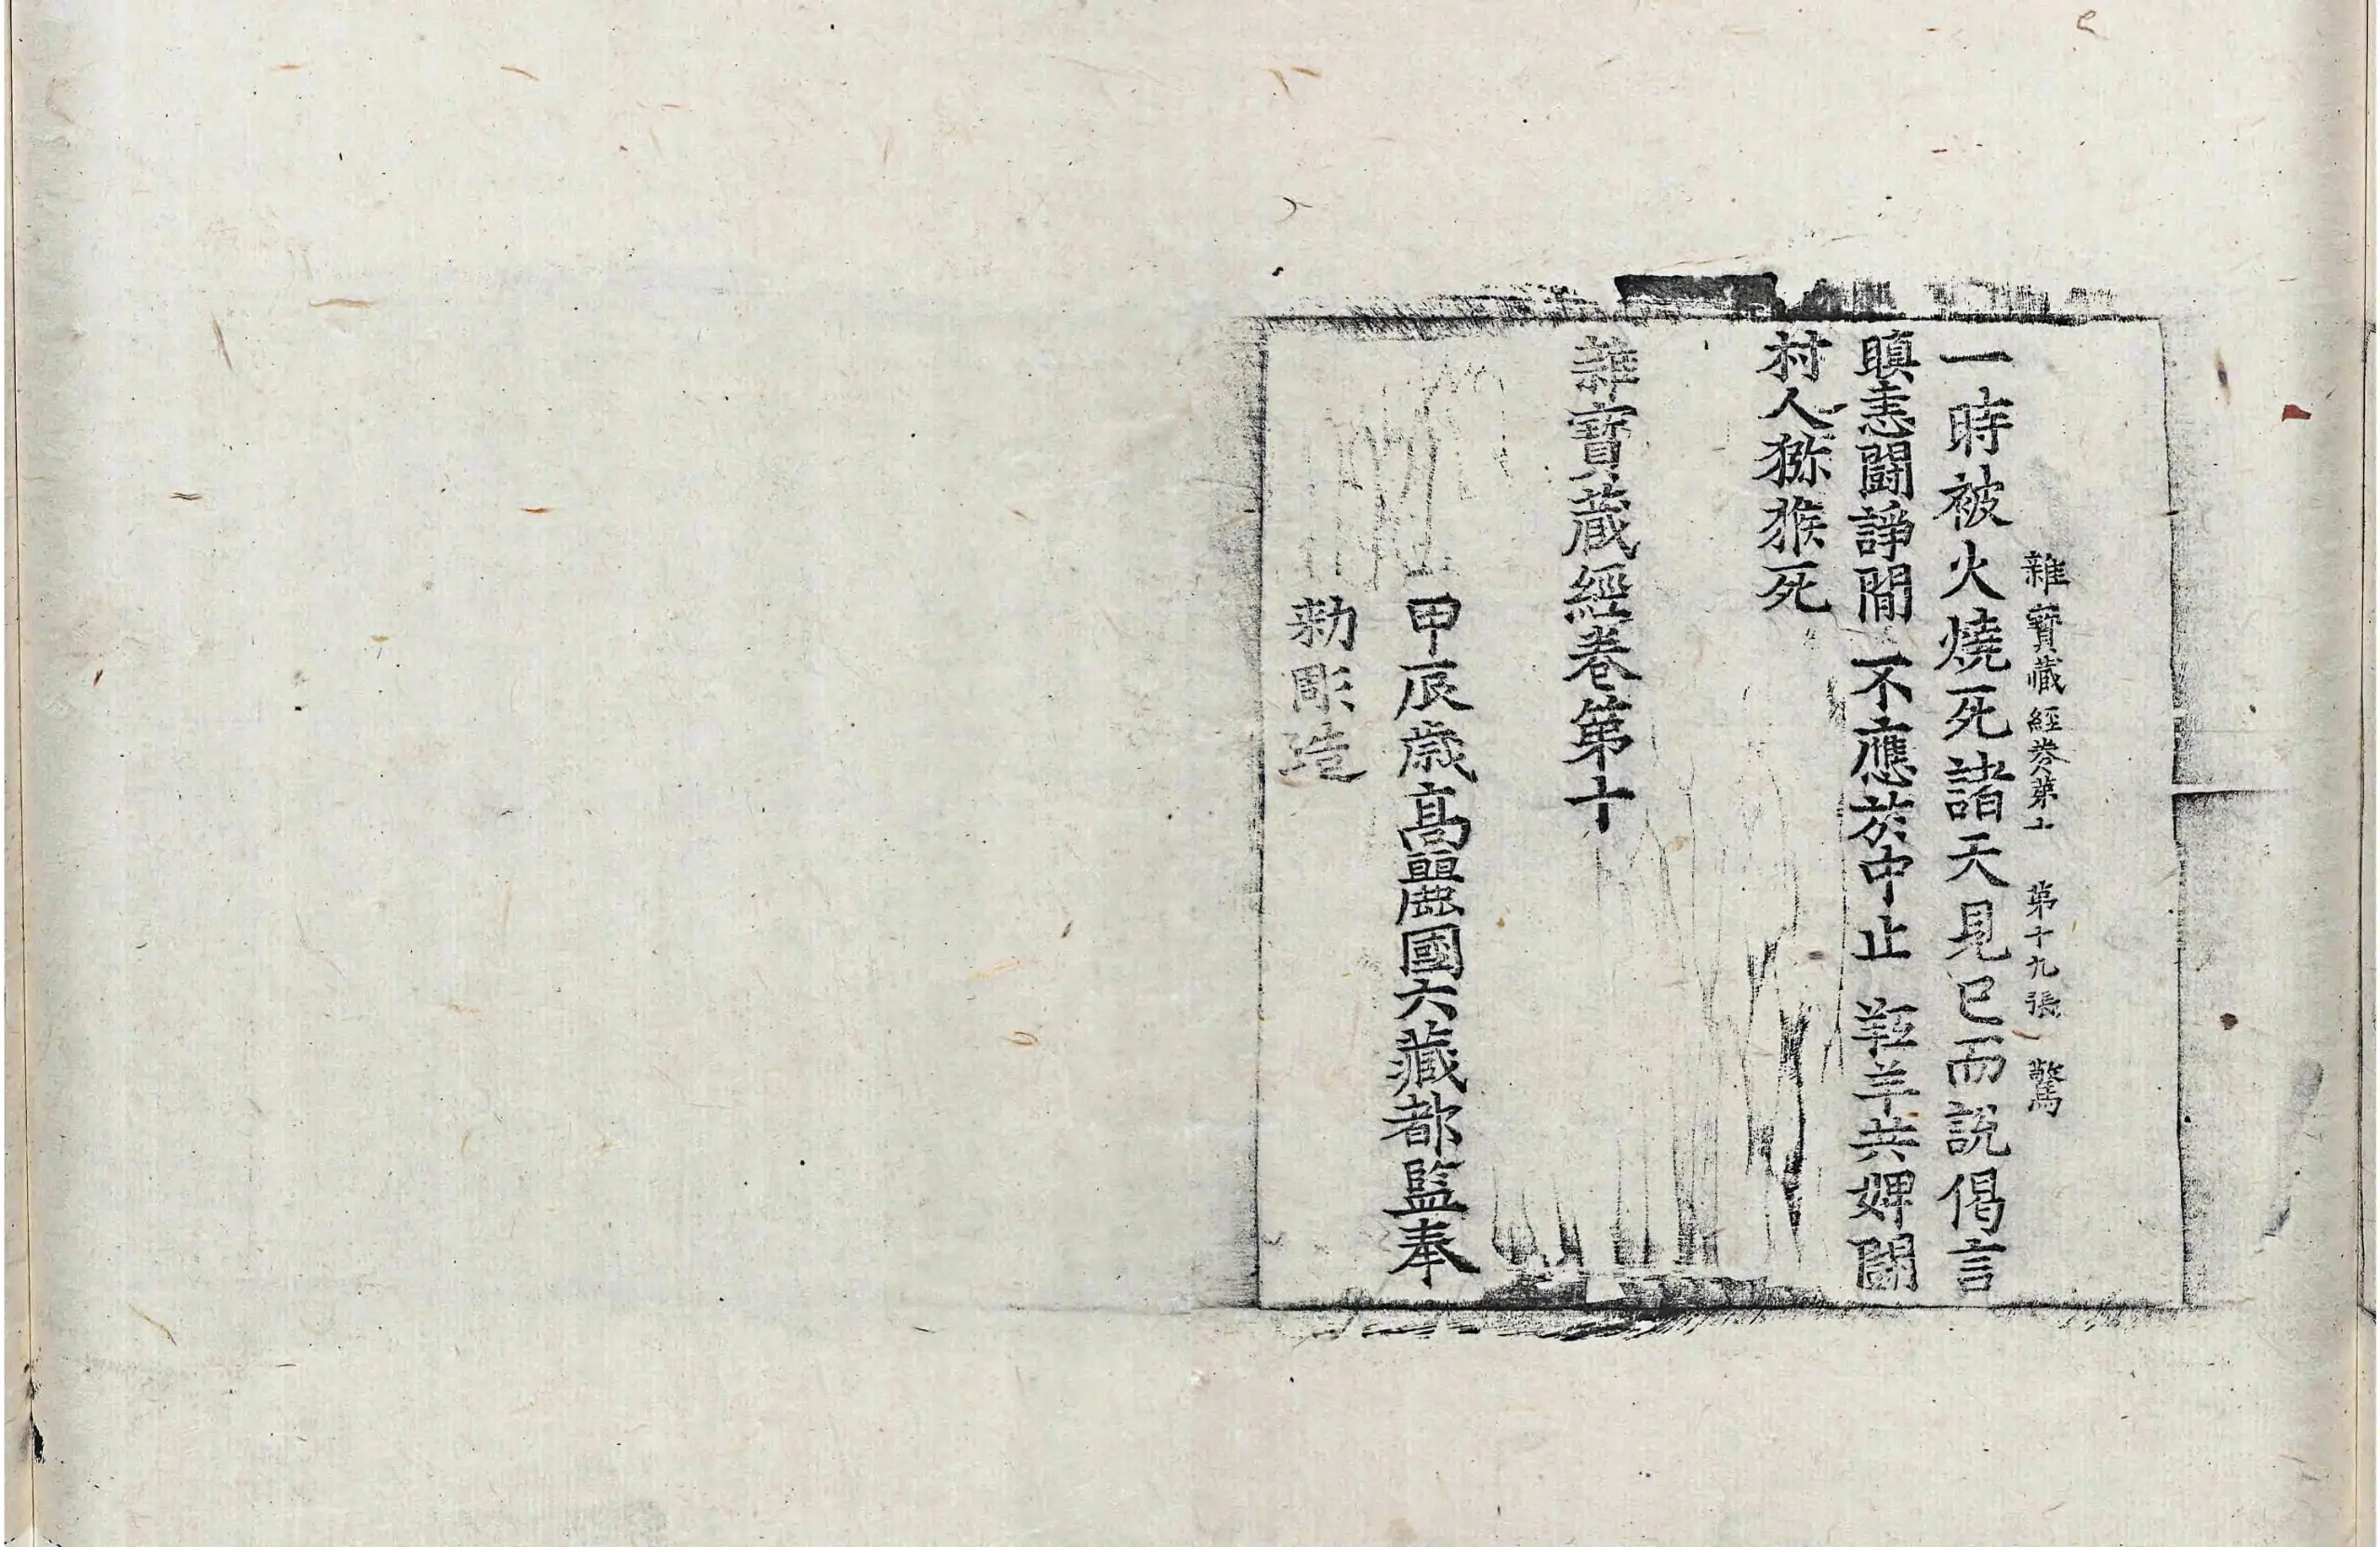 雜寶藏經卷第十 第十九張 驚
一時被火燒死諸天見已而說偈言
瞋恚鬪諍閒 不應於中止 羝羊共婢鬪
村人獼猴死
雜寶藏經卷第十
甲辰歲高麗國大藏都監奉
勅彫造